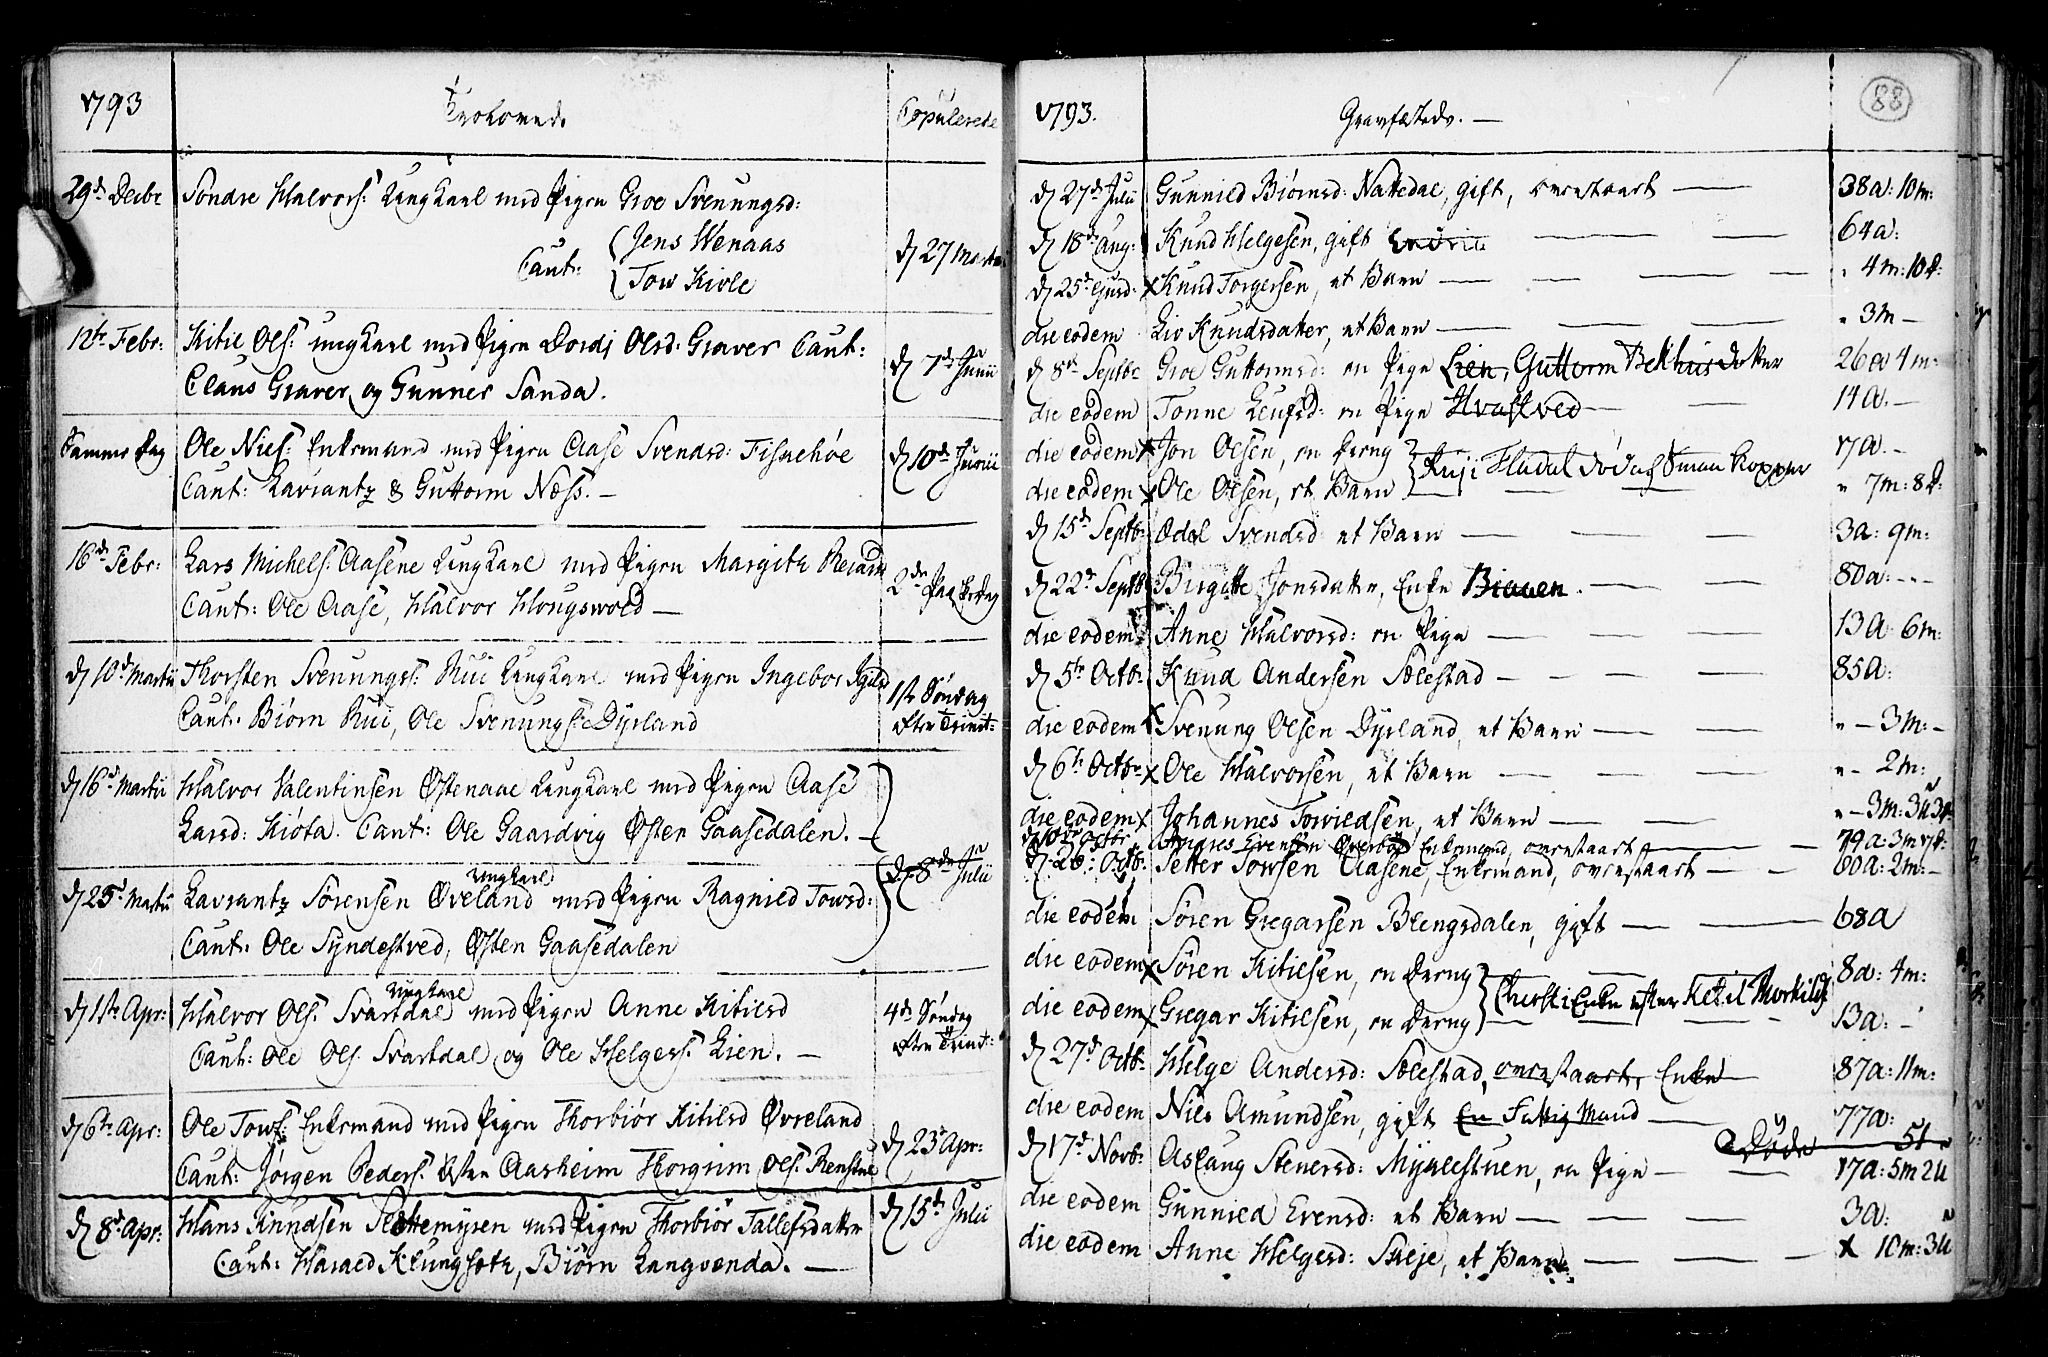 1793
Trolovede.
Copulerede
29de Decbr
Søndre Halvors: Ungkarl med Pigen Groe Svenungsd:
Cant: Jens Wenaas
Tow Kivle
d 27 Martii
12te Febr:
Kitil Ols: ungkarl med Pigen Dordi Olsd: Graver Cant:
Claus Graver, og Gunner Sanda.
d 7de Junii
Samme Dag
Ole Niels: Enkemand med Pigen Aase Svendsd: Fisnehøe
Cant: Lavrantz & Guttorm Næss. —
d 10de Junii
16de Febr:
Lars Michels: Aasene Ungkarl med Pigen Margith
Cant: Ole Aase, Halvor Hougswold —
2den Paaskedag
d 10de Martii
Thorsten Svenungs: Rui Ungkarl med Pigen Ingebor
Cant: Biørn Rui, Ole Svenungs: Dyrland
1ste Søndag
efter Trinit:
d 16de Martii
Halvor Valentinsen Østenaae Ungkarl med Pigen Aase
Larsd: Kiøta. Cant: Ole Gaardvig Østen Gaasedalen. —
d 8de Julii
ungkarl
d 25de Martii
Lavrantz Sørensen Øveland med Pigen Ragnild Towsd:
Cant: Ole Syndestved, Østen Gaasedalen
ungkarl
d 1ste Apr:
Halvor Ols: Svartdal med Pigen Anne Kitilsd
Cant: Ole Ols: Svartdal og Ole Helgers: Lien. —
4de Søndag
efter Trinit:
d 6te Apr:
Ole Tows: Enkemand med Pigen Thorbiør Kitilsd Øvreland
Cant: Jørgen Peders: Østen Aasheim Thorgrim Ols:
d 23de Apr:
d 8de Apr:
Hans Knudsen med Pigen Thorbiør Tallefsdatter
Cant: Harald Klungseth, Biørn Langvenda. —
d 15de Julii
1793.
Gravfæstede. —
88
d 27de Julii Gunnild Biørnsd: Nattedal, gift, ovenstaart — 38a: 10m:
d 18de Aug: Knud Helgesen, gift — 64a:
d 25de ejusd: x Knud Torgersen, et Barn — 4m: 10d:
die eodem Liv Knudsdatter, et Barn — 3m —
d 8de Septbr Groe Guttormsd: en Pige Lien, Guttorm Bekhus datter 26a 4m:
die eodem Tonne Leufsd: en Pige Hvastved — 14a. —
die eodem x Jon Olsen, en Dreng 17a. —
die eodem x Ole Olsen, et Barn 7m: 8d:
Flådal døde af Smaa Kopper
d 15de Septbr Odel Svendsd et Barn — 3a: 9m:
d 22de Septbr Birgitte Jonsdatter, Enke — 80a: - - -
die eodem Anne Halvorsd: en Pige — 13a 6m:
d 5te Octbr Knud Andersen Sælestad — 85a:
die eodem x Svenung Olsen Dyrland, et Barn — 3m: —
d 6te Octbr x Ole Halvorsen, et Barn — 2m:
die eodem x Johannes Towildsen, et Barn — 3m: 3u
Octbr Evensen Enkemand, ovenstaart — 79a: 3m
d 26: Octb: Petter Towsen Aasene, Enkemand, ovenstaart — 60a: 2m: —
die eodem Søren Gregarsen Blengsdalen, gift — 68a
die eodem x Søren Kitilsen, en Dreng 8a: 4m:
die eodem x Gregar Kitilsen, en Dreng 13a: —
Enke efter Ketil
d 27de Octbr Helge Andersd: Sælestad, ovenstaart, Enke 87a: 11m:
die eodem Niels Amundsen, gift En Fattig Mand — 77a:
Døde 51
d 17de Novbr: Aslaug Stenersd: Myrlestuen, en Pige — 17a: 5m 2u
die eodem Gunnild Evensd: et Barn — 3a:
die eodem Anne Helgersd: Skeje, et Barn — x 10m: 3u